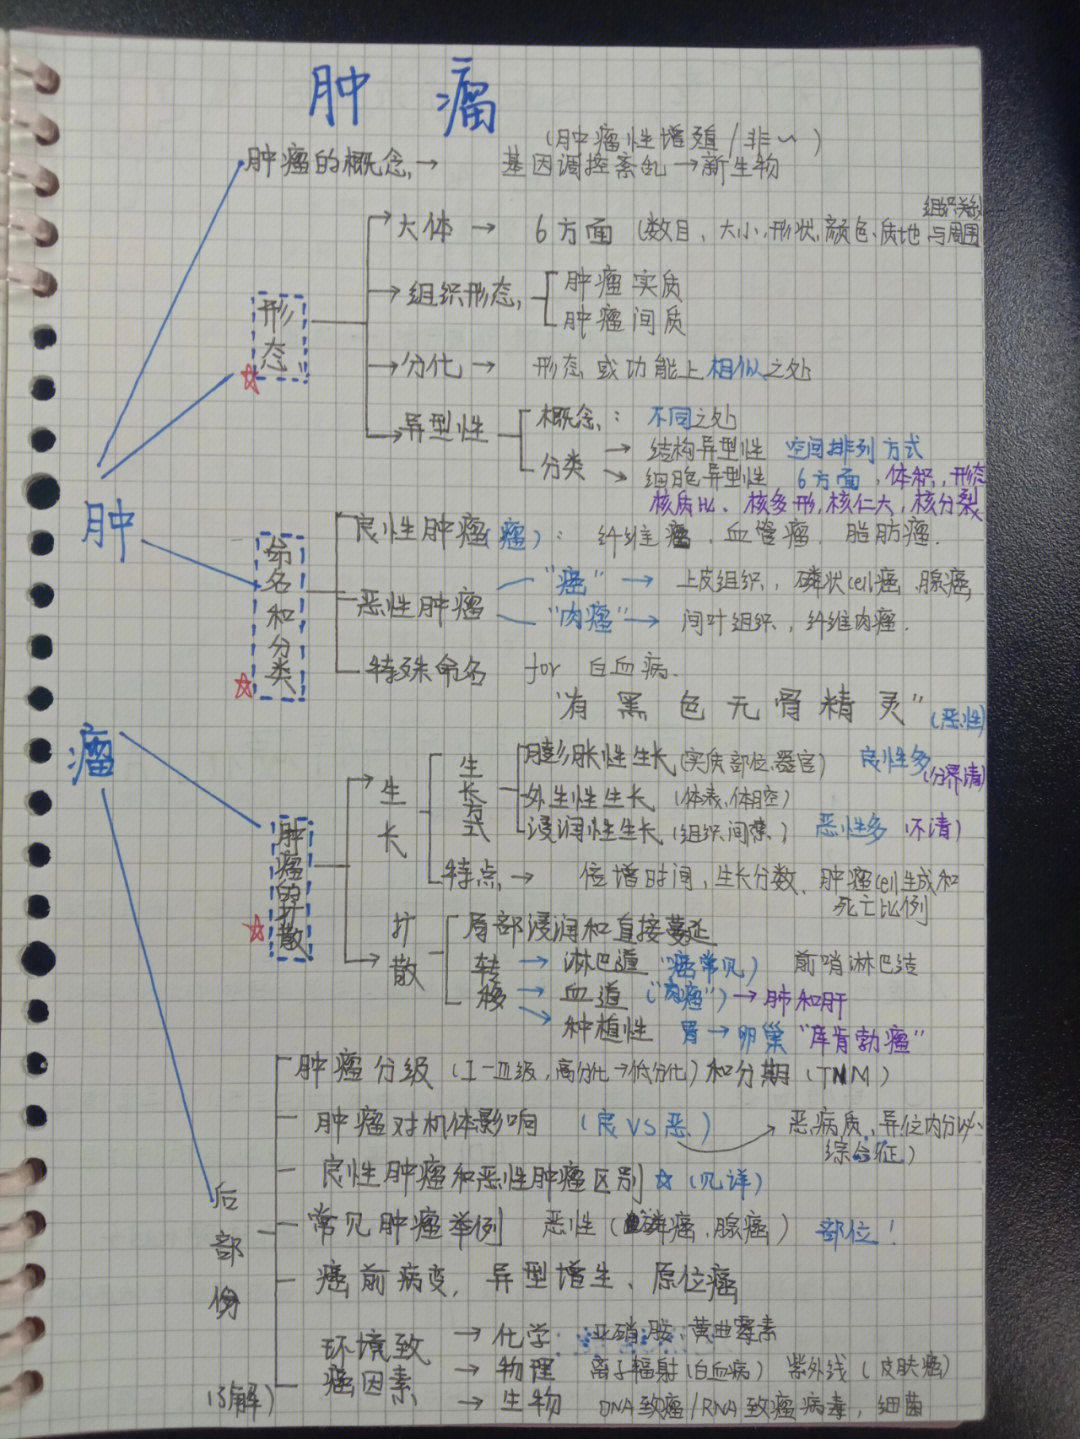 肿 瘤
(肿瘤性增殖/非~)
肿瘤的概念 → 基因调控紊乱→新生物
组织关系
大体 → 6方面 (数目、大小,形状,颜色、质地、与周围
组织形态
肿瘤实质
肿瘤间质
形态
分化 → 形态或功能上相似之处
异型性
概念: 不同之处
分类
→ 结构异型性 空间排列方式
→ 细胞异型性 6方面,体积,形态
核质比、核多形,核仁大,核分裂
肿
命名和分类
良性肿瘤(瘤): 纤维瘤、血管瘤、脂肪瘤.
恶性肿瘤
"癌" → 上皮组织,磷状cell癌、腺癌
"肉瘤" → 间叶组织,纤维肉瘤.
特殊命名 for 白血病.
"有黑色无骨精灵"(恶性)
瘤
肿瘤的扩散
生长
生长方式
膨胀性生长(实质部位、器官) 良性多(分界清)
外生性生长 (体表、体腔)
浸润性生长(组织间隙) 恶性多 (不清)
特点 → 倍增时间,生长分数、肿瘤cell生成和
死亡比例
扩散
局部浸润和直接蔓延
转移
→ 淋巴道 "癌常见) 前哨淋巴结
→ 血道 ("肉瘤")→肺和肝
→ 种植性 胃→卵巢 "库肯勃瘤"
后部份
(了解)
肿瘤分级 (I-III级,高分化→低分化)和分期(TNM)
肿瘤对机体影响 (良VS恶) → 恶病质、异位内分泌
综合征)
良性肿瘤和恶性肿瘤区别☆(见详)
常见肿瘤举例 恶性(鳞癌、腺癌) 部位!
癌前病变,异型增生、原位癌
环境致癌因素
→ 化学: 亚硝胺,黄曲霉素
→ 物理 离子辐射(白血病) 紫外线(皮肤癌)
→ 生物 DNA致癌/RNA致瘤病毒,细菌